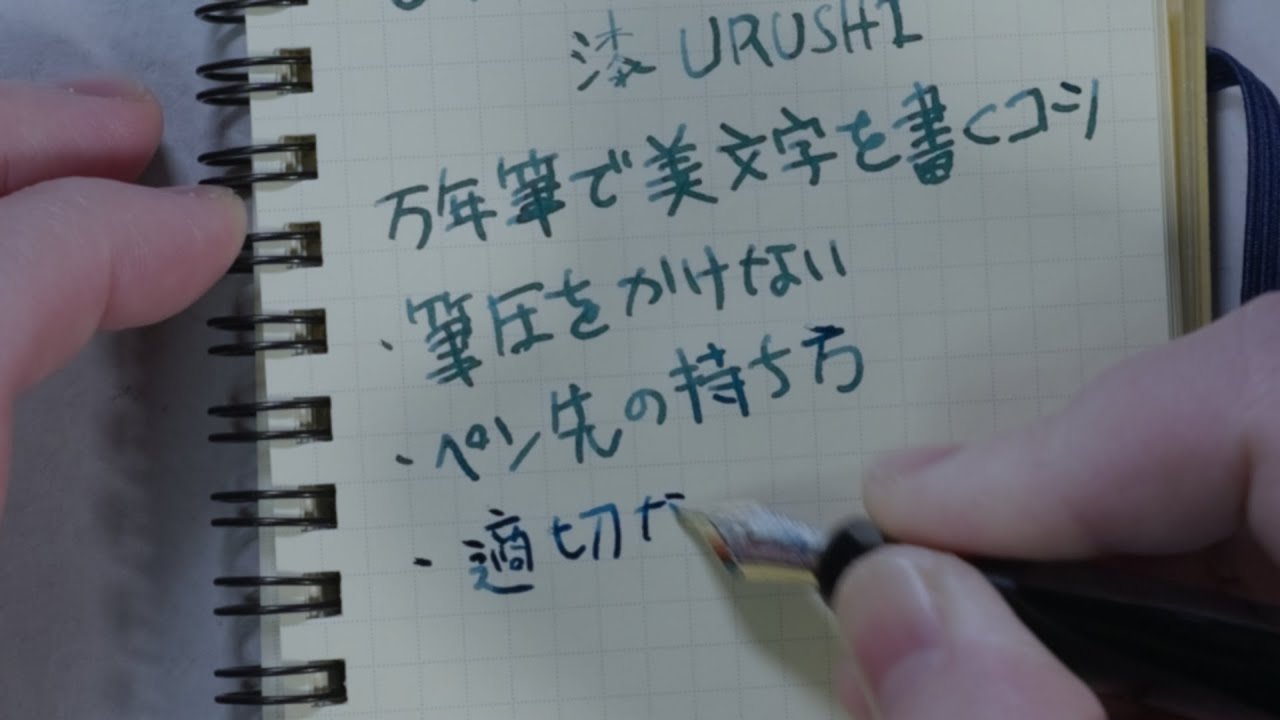 漆 URUSHI
万年筆で美文字を書くコツ
・筆圧をかけない
・ペン先の持ち方
・適切な